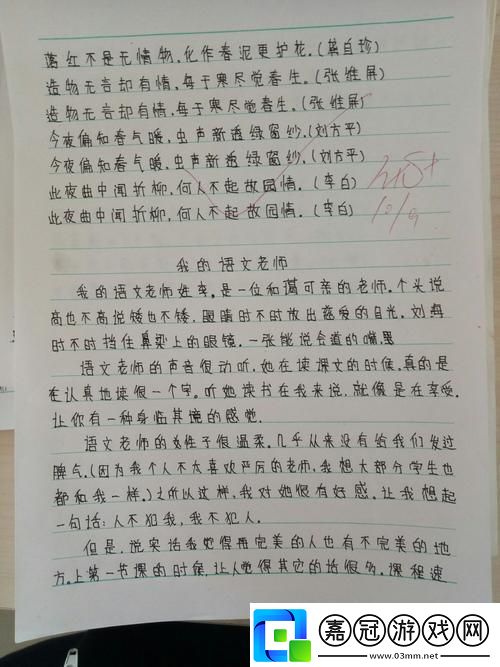 落红不是无情物,化作春泥更护花。(龚自珍)
造物无言却有情,每于寒尽觉春生。(张维屏)
造物无言却有情,每于寒尽觉春生。(张维屏)
今夜偏知春气暖,虫声新透绿窗纱。(刘方平)
今夜偏知春气暖,虫声新透绿窗纱。(刘方平)
此夜曲中闻折柳,何人不起故园情。(李白)
此夜曲中闻折柳,何人不起故园情。(李白)
10/9
我的语文老师
我的语文老师姓李。是一位和蔼可亲的老师。个头说
高也不高说矮也不矮,眼睛时不时放出慈爱的目光。刘海
时不时挡住鼻梁上的眼镜。一张能说会道的嘴。
语文老师的声音很动听,她在读课文的时候,真的是
在认真地读很一个字。听她读书在我来说,就像是在享受。
让你有一种身临其境的感觉。
语文老师的性子很温柔。几乎从来没有给我们发过
脾气。(因为我个人不太喜欢严厉的老师,我想大部分学生也
都和我一样。)之所以这样,我对她很有好感。让我想起
一句话:人不犯我,我不犯人。
但是,说实话我觉得再完美的人也有不完美的地
方。上第一节课的时候,让人觉得其它的话很多。课程速
嘉冠游戏网
www.03mm.net